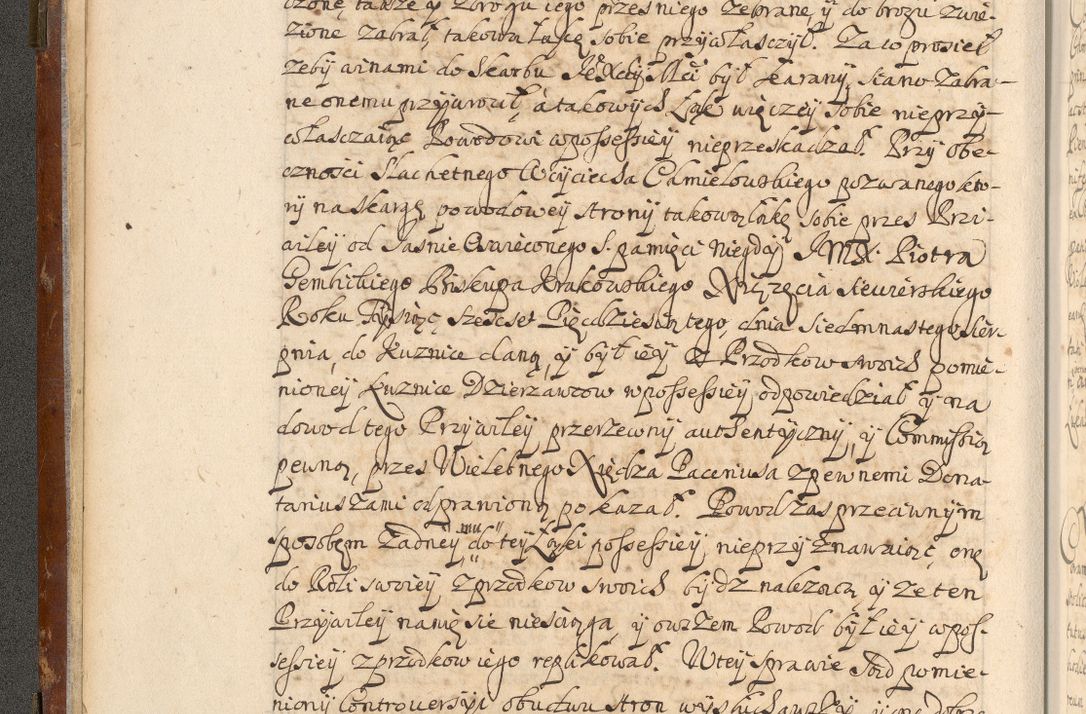 czone, także y z brogu iego przes niego zebrane, y do brogu zwie-
zione zabrał, takową łąkę sobie przywłasczył. Za co prosieł
żeby winami do Skarbu JeXcey Mci był karany, siano zabra-
ne onemu przywrócił, a takowych łąk więczey sobie nieprzy-
własczaiąc Powodowi w possessiey nieprzeskadzał. Przy obe-
czności Slachetnego Woyciecha Chmielowskiego pozwanego kto-
ry na skargę powodowey strony takową łąkę sobie przes Przi-
wiley od Jasnie Oswięconego S. pamięci niegdy J. M. X. Piotra
Gembickiego Biskupa Krakowskiego Xiązęcia Siewierskiego
Roku Tysiąc Szescset Pięcdziesiątego, dnia siedmnastego sier-
pnia, do Kuznice daną, y był iey z Przodkow swoich pomie-
nioney Kuznice Dzierzawcow w possessiey, odpowiedział y na
dowod tego Przywiley przerzewny authentyczny, y Commissią
pewną, przes Wielebnego Xiędza Paceniusa z pewnemi Dona-
tariuszami odprawioną pokazał. Powod zas przeciwnym
sposobem żadney mu do tey łąki possessiey, nieprzyznawaiąc, onę
do Roli swoiey, z przodkow swoich bydz należącą y że ten
Przywiley na nię sie niesciąga, y owszem Powod był iey w pos-
sessiey z przodkow iego replikował. W tey sprawie Sąd pomie-
niony Controversyi obudwu stron wysłuchawszy, y one dobrze